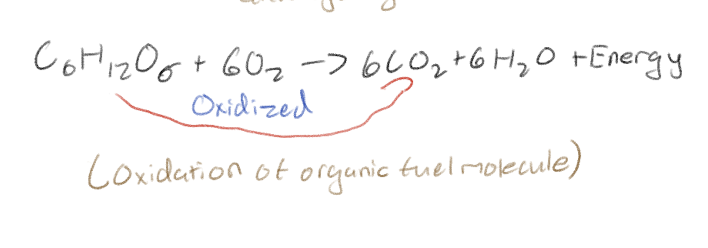 C₆H₁₂O₆ + 6O₂ -> 6CO₂ + 6H₂O + Energy
Oxidized
(Oxidation of organic fuel molecule)